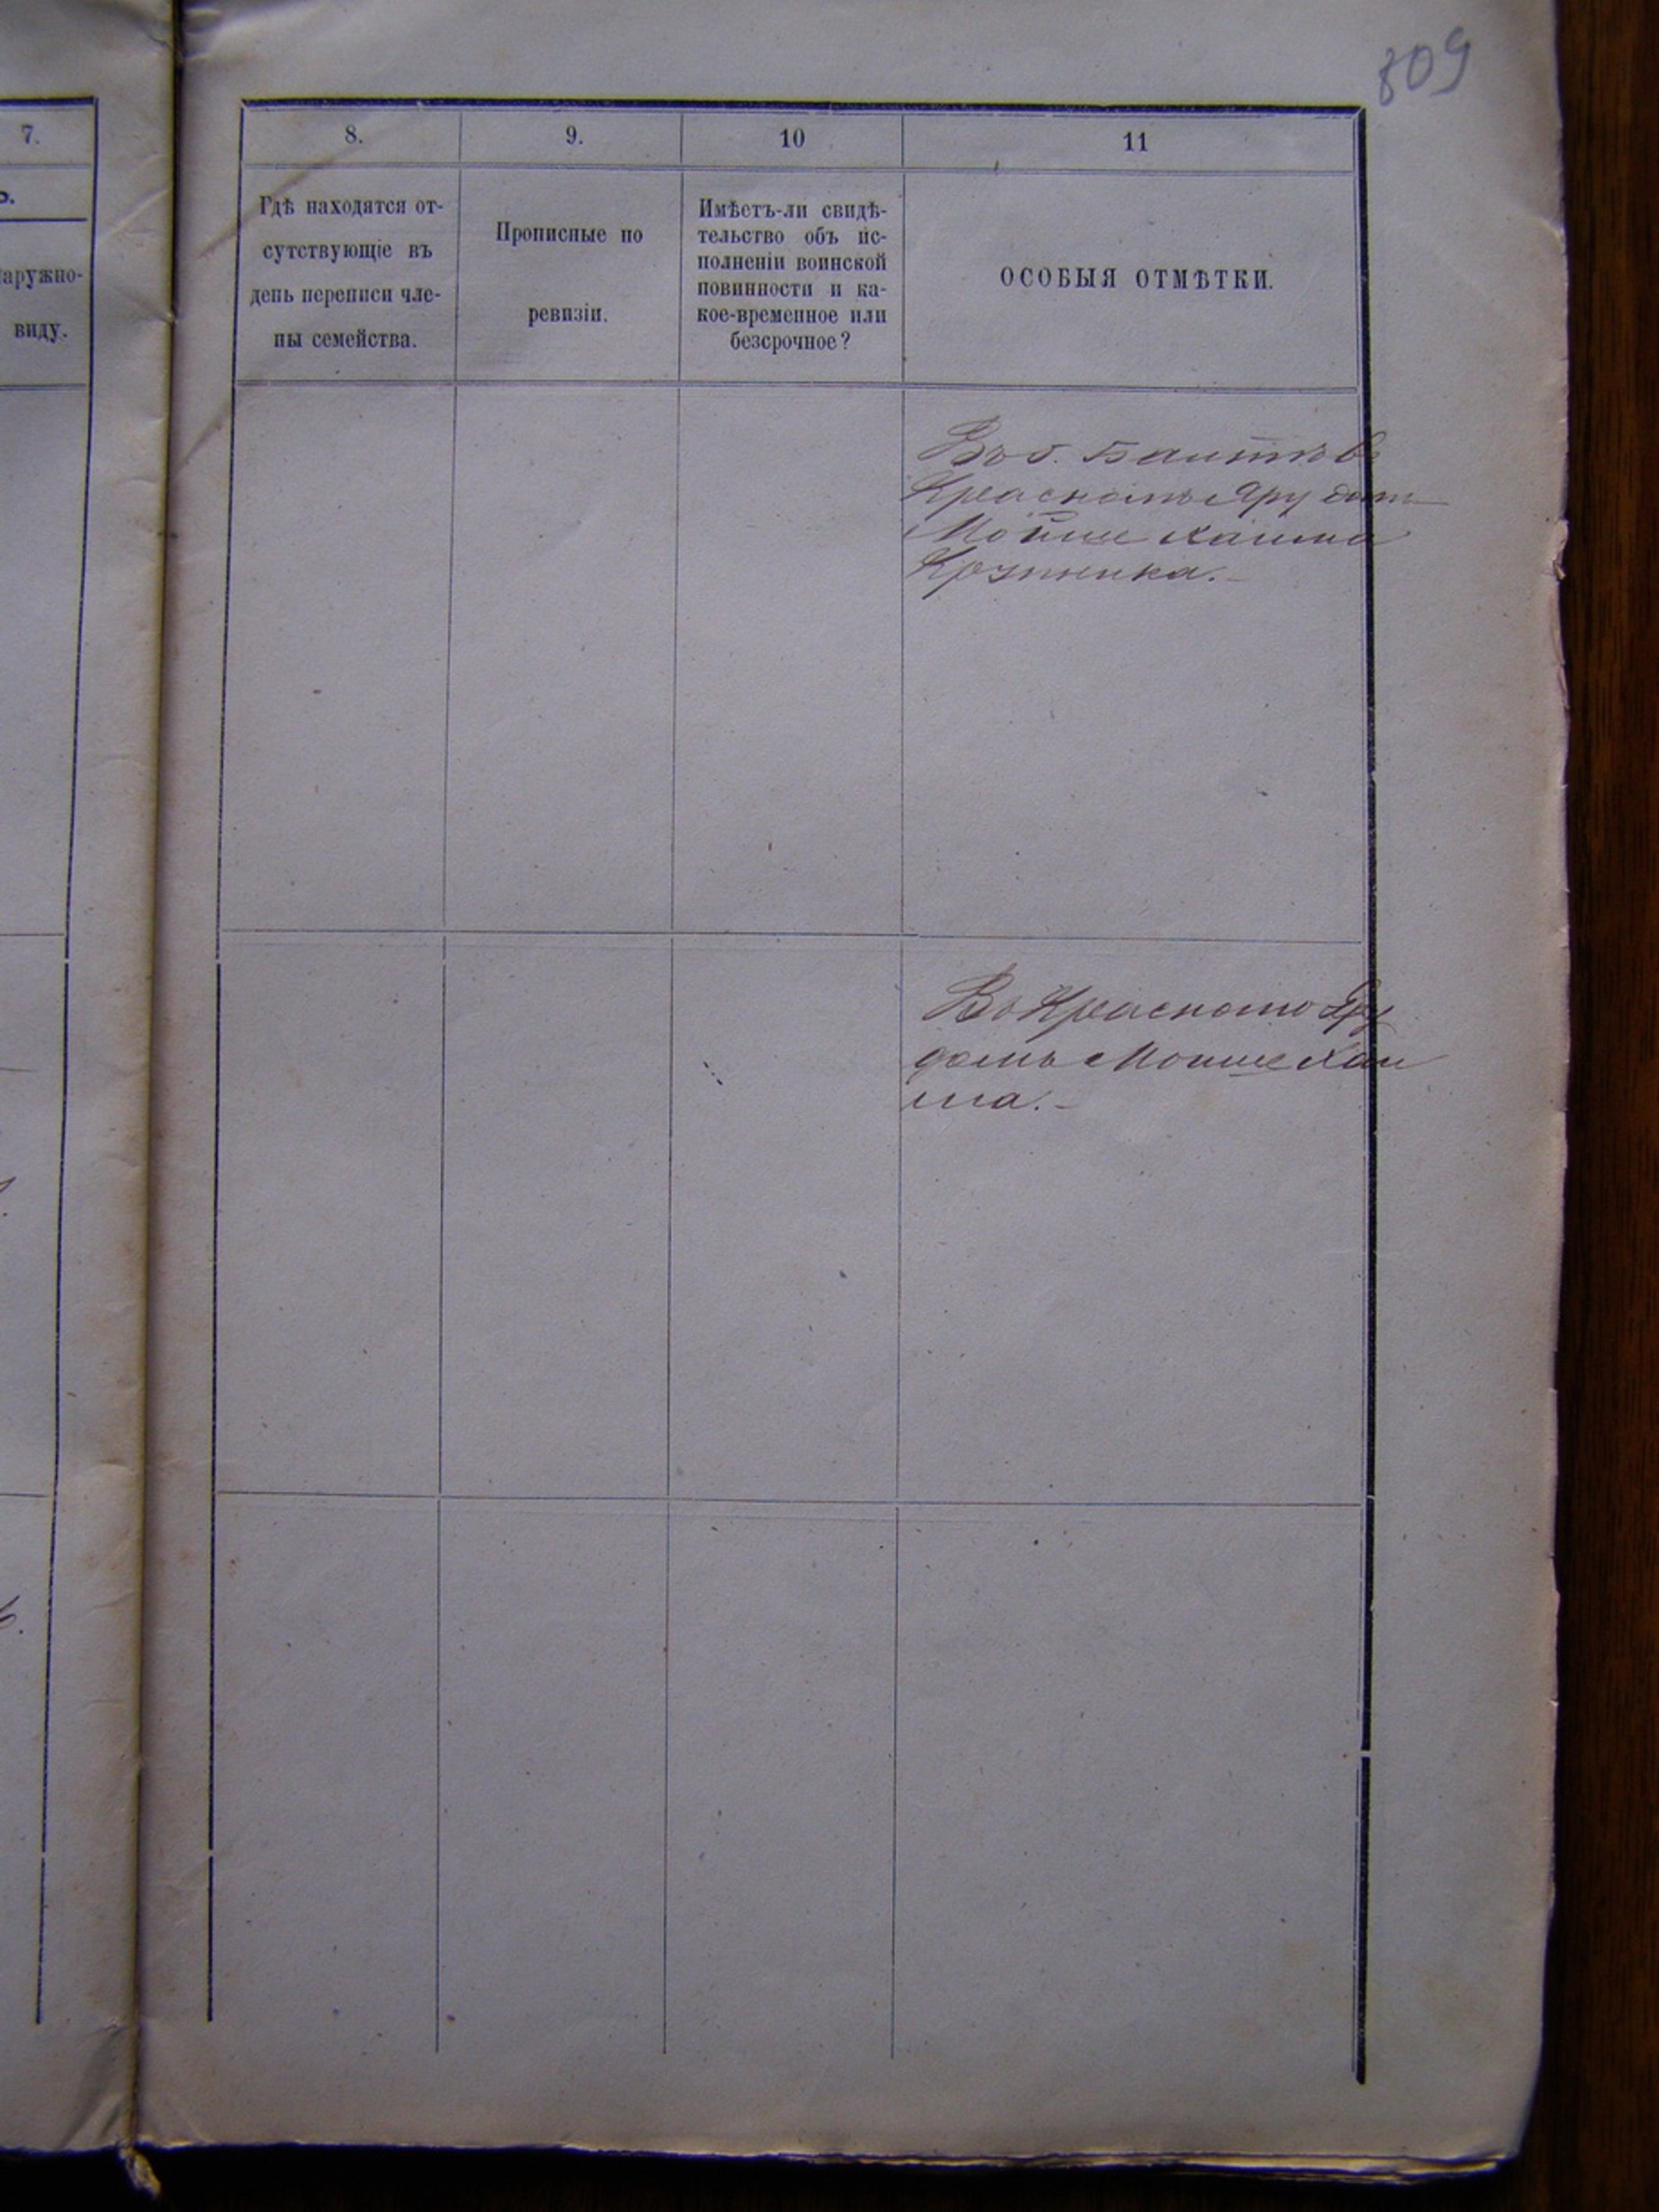 809
7.
ъ.
наружно-
виду.
8.
9.
10
11
Гдѣ находятся от-
сутствующіе въ
день переписи чле-
ны семейства.
Прописные по
ревизіи.
Имѣетъ-ли свидѣ-
тельство объ ис-
полненіи воинской
повинности и ка-
кое-временное или
безсрочное?
ОСОБЫЯ ОТМѢТКИ.
Въ г. Балтѣ в
Красномъ Яру домъ
Мошке Хаима
Въ Красномъ Яру
домъ Мошке Хаи
ма.-